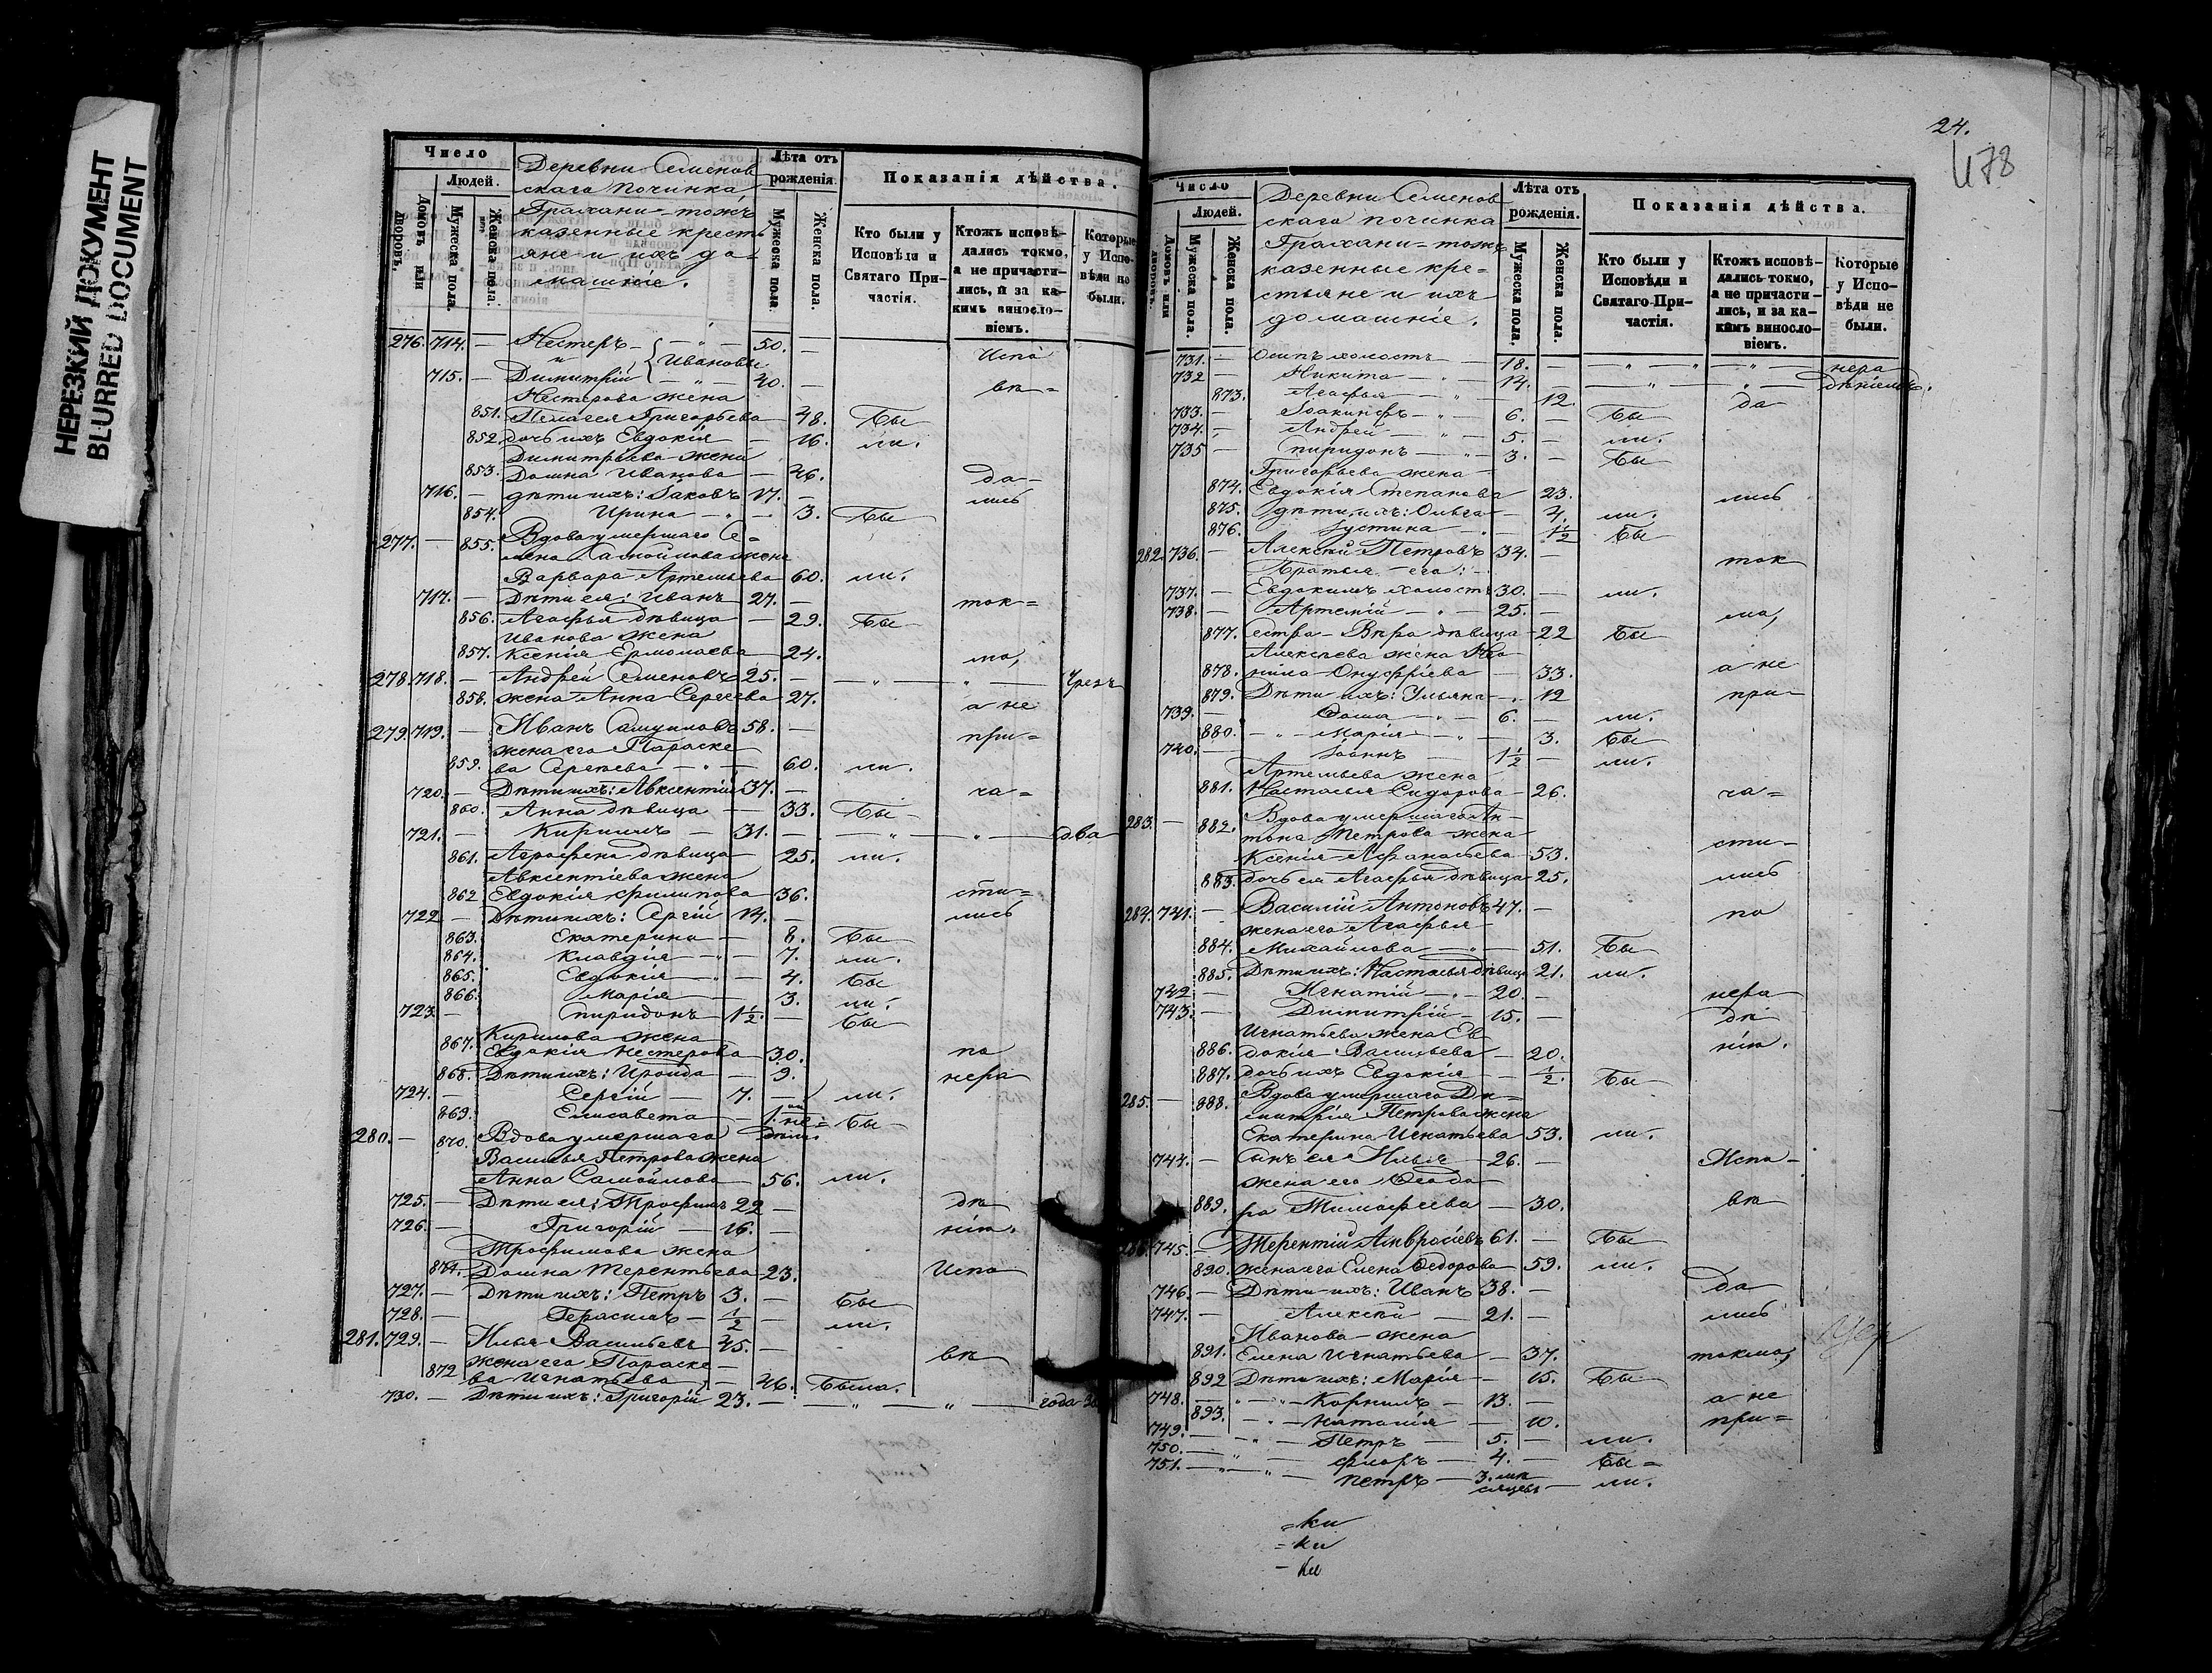 НЕРЕЗКИЙ ДОКУМЕНТ
BLURRED DOCUMENT
Число
Людей.
Домовъ или дворовъ.
Мужеска пола.
Женска пола.
Деревни Семенов
скаго починка
Грахани-тожъ
казенные кресть
яне и ихъ до-
машніе.
Лѣта отъ рожденія.
Мужеска пола.
Женска пола.
Показанія дѣйства.
Кто были у Исповѣди и Святаго Причастія.
Ктожъ исповѣдались токмо, а не причастились, и за какимъ винословіемъ.
Которые у Исповѣди не были.
276. 714. — Нестеръ — " — 50. — Испо
и Ивановы
715. — Димитрій — " — 40. — вѣ=
Нестерова жена
851. Пелагея Григорьева — 48. Бы
852. дочь ихъ Евдокія — 16. ли.
Димитріева жена
853. Домна Иванова — 46. да-
716. — дѣти ихъ: Іаковъ 17. — лись
854. Ирина — " — 3. Бы
277. — 855. Вдова умершаго Се=
мена Самойлова жена
Варвара Артемьева 60. ли.
717. — Дѣти ея: Иванъ 27. — ток=
856. Агафья дѣвица — 29. Бы
Иванова жена
857. Ксенія Ермолаева 24. мо,
278. 718. — Андрей Семеновъ 25. — " — " — Чрезъ
858. жена Анна Сергеева 27. а не
279. 719. — Иванъ Самуиловъ 58. — при=
жена его Параске
859. ва Сергѣева — " — 60. ли.
720. — Дѣти ихъ: Авксентій 37. — ча=
860. Анна дѣвица — 33. Бы-
721. — Кириллъ — 31. — " — " — два
861. Агрофена дѣвица 25. ли.
Авксентіева жена
862 Евдокія Филипова 36. сти=
722 — Дѣти ихъ: Сергій 14. — лись
863. Екатерина — 8. Бы
864. Клавдія — " — 7. ли.
865. Евдокія — " — 4. Бы
866. Марія — 3. ли.
723. — Спиридонъ 1½. — Бы
867. Кирилова жена
Евдокія Нестерова 30. по
868. Дѣти ихъ: Ироида — 9. нера
724. — Сергій — 7. — ли.
869. Елисавета — Бы-
280. — 870. Вдова умершаго
Василья Петрова жена
Анна Самойлова 56. ли.
725. — Дѣти ея: Трофимъ 22 — дѣ
726. — Григорій — 16. — нію.
Трофимова жена
871. Домна Терентьева 23. Испо
727. — Дѣти ихъ: Петръ 3. — Бы
728. — Герасимъ — ½ — ли.
281. 729. — Илья Васильевъ 45. — вѣ
жена его Параске-
872 ва Игнатьева, — 46. Была.
730. — Дѣти ихъ: Григорій 23. — " — " — года за
24.
478
Число
Людей.
Домовъ или дворовъ.
Мужеска пола.
Женска пола.
Деревни Семенов
скаго починка
Грахани=тожъ
казенные кре=
стьяне и ихъ
домашніе.
Лѣта отъ рожденія.
Мужеска пола.
Женска пола.
Показанія дѣйства.
Кто были у Исповѣди и Святаго Причастія.
Ктожъ исповѣдались токмо, а не причастились, и за какимъ винословіемъ.
Которые у Исповѣди не были.
731. — Осипъ холостъ — 18. — " — " — нера
732 — Никита — " — 14. — " — " — дѣніемъ.
873. Агафья — " — 12. да
733. — Іоакинфъ — " — 6. — Бы
734. — Андрей — " — 5. — ли.
735 — Спиридонъ — " — 3. — Бы
Григорьева жена —
874. Евдокія Степанова 23. лись
875. дѣти ихъ: Ольга — 4. ли.
876. Іустина — 1½ Бы
282. 736. — Алексѣй Петровъ 34. — ток
Братья его: —
737. — Евдокимъ холостъ 30. — ли.
738. — Артемій — " — 25. — мо,
877. Сестра Вѣра дѣвица 22 Бы
Алексѣева жена Нео
878. нила Онуфріева — 33. а не
879. Дѣти ихъ: Ульяна — 12 при-
739. — Фома — " — 6. — ли.
880. — " — Марія — " — 3. Бы
740. — Іоаннъ 1½ — ли.
Артемьева жена
881. Настасья Сидорова 26. ча=
283. — 882. Вдова умершаго Ан-
тона Петрова жена
Ксенія Афанасьева 53. сти-
883. дочь ея Агафья дѣвица 25. лись
284. 741. — Василій Антоновъ 47. — по
жена его Агафья
884. Михайлова — " — 51. Бы
885. Дѣти ихъ: Настасья дѣвица 21. ли.
742 — Игнатій — " — 20. — нера
743. — Димитрій — 15. — дѣ
Игнатьева жена Ев
886. докія Васильева — 20. нію.
887. дочь ихъ Евдокія — ½. Бы
285. — 888. Вдова умершаго Ди=
митрія Петрова жена
Екатерина Игнатьева 53. ли.
744. — Сынъ ея Илья — 26. — Испо-
жена его Ѳеодо
889. ра Тимофеева — 30. вѣ
286. 745. — Терентій Амвросіевъ 61. — Бы
890. жена его Елена Ѳедорова 59. ли.
746. — Дѣти ихъ: Иванъ 38. — да
747. — Алексѣй — 21. — лись
Иванова жена
891. Елена Игнатьева — 37. токмо,
892 Дѣти ихъ: Марія — 15. Бы
748. — " — Корнилъ — 13. — а не
893. — " — Наталія — 10. при=
749. — " — Петръ — 5. — ли.
750. — " — Флоръ — 4. — Бы=
751. — " — " — Петръ — 3. мѣ
сяцевъ — ли.
=ки
=ки
-ки